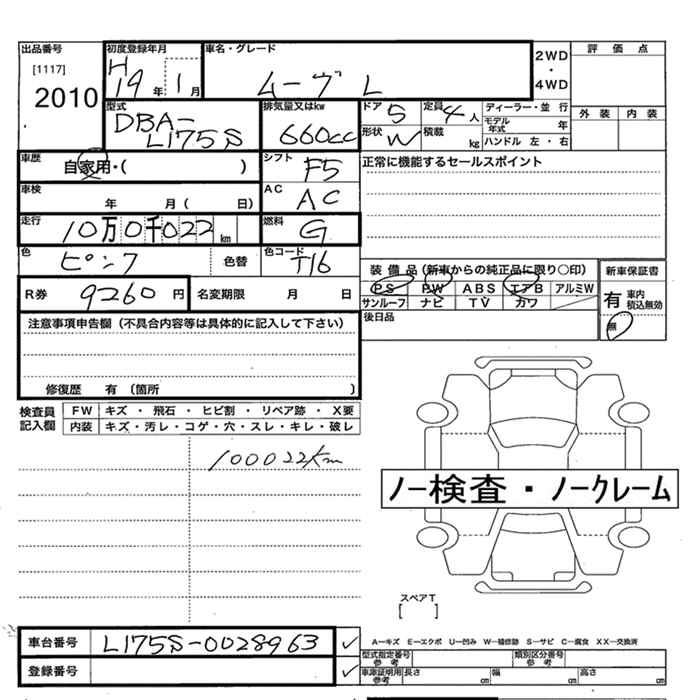 出品番号 初度登録年月 車名・グレード 評価点
[1117] H 2WD
2010 19年 1月 ムーヴ L ・
4WD
型式 排気量又はkw ドア 5 定員 4人 ディーラー・並行 外装 内装
DBA- モデル年式 年
L175S 660cc 形状 W 積載 kg ハンドル 左・右
車歴 自家用・( ) シフト F5 正常に機能するセールスポイント
車検 年 月( 日) AC AC
走行 10万0千022km 燃料 G
色 ピンク 色替 色コード T16 装備品(新車からの純正品に限り○印) 新車保証書
R券 9260円 名変期限 月 日 PS PW ABS エアB アルミW 有 車内積込無効
サンルーフ ナビ TV カワ 無
注意事項申告欄(不具合内容等は具体的に記入して下さい) 後日品
修復歴 有(箇所 )
検査員 FW キズ・飛石・ヒビ割・リペア跡・X要
記入欄 内装 キズ・汚レ・コゲ・穴・スレ・キレ・破レ
100022km
ノー検査・ノークレーム
スペアT
[ ]
車台番号 L175S-0028963 ✓ A-キズ E-エクボ U-凹み W-補修跡 S-サビ C-腐食 XX-交換済
型式指定番号 参考 類別区分番号 参考
登録番号 ✓ 車庫証明用 参考 長さ cm 幅 cm 高さ cm